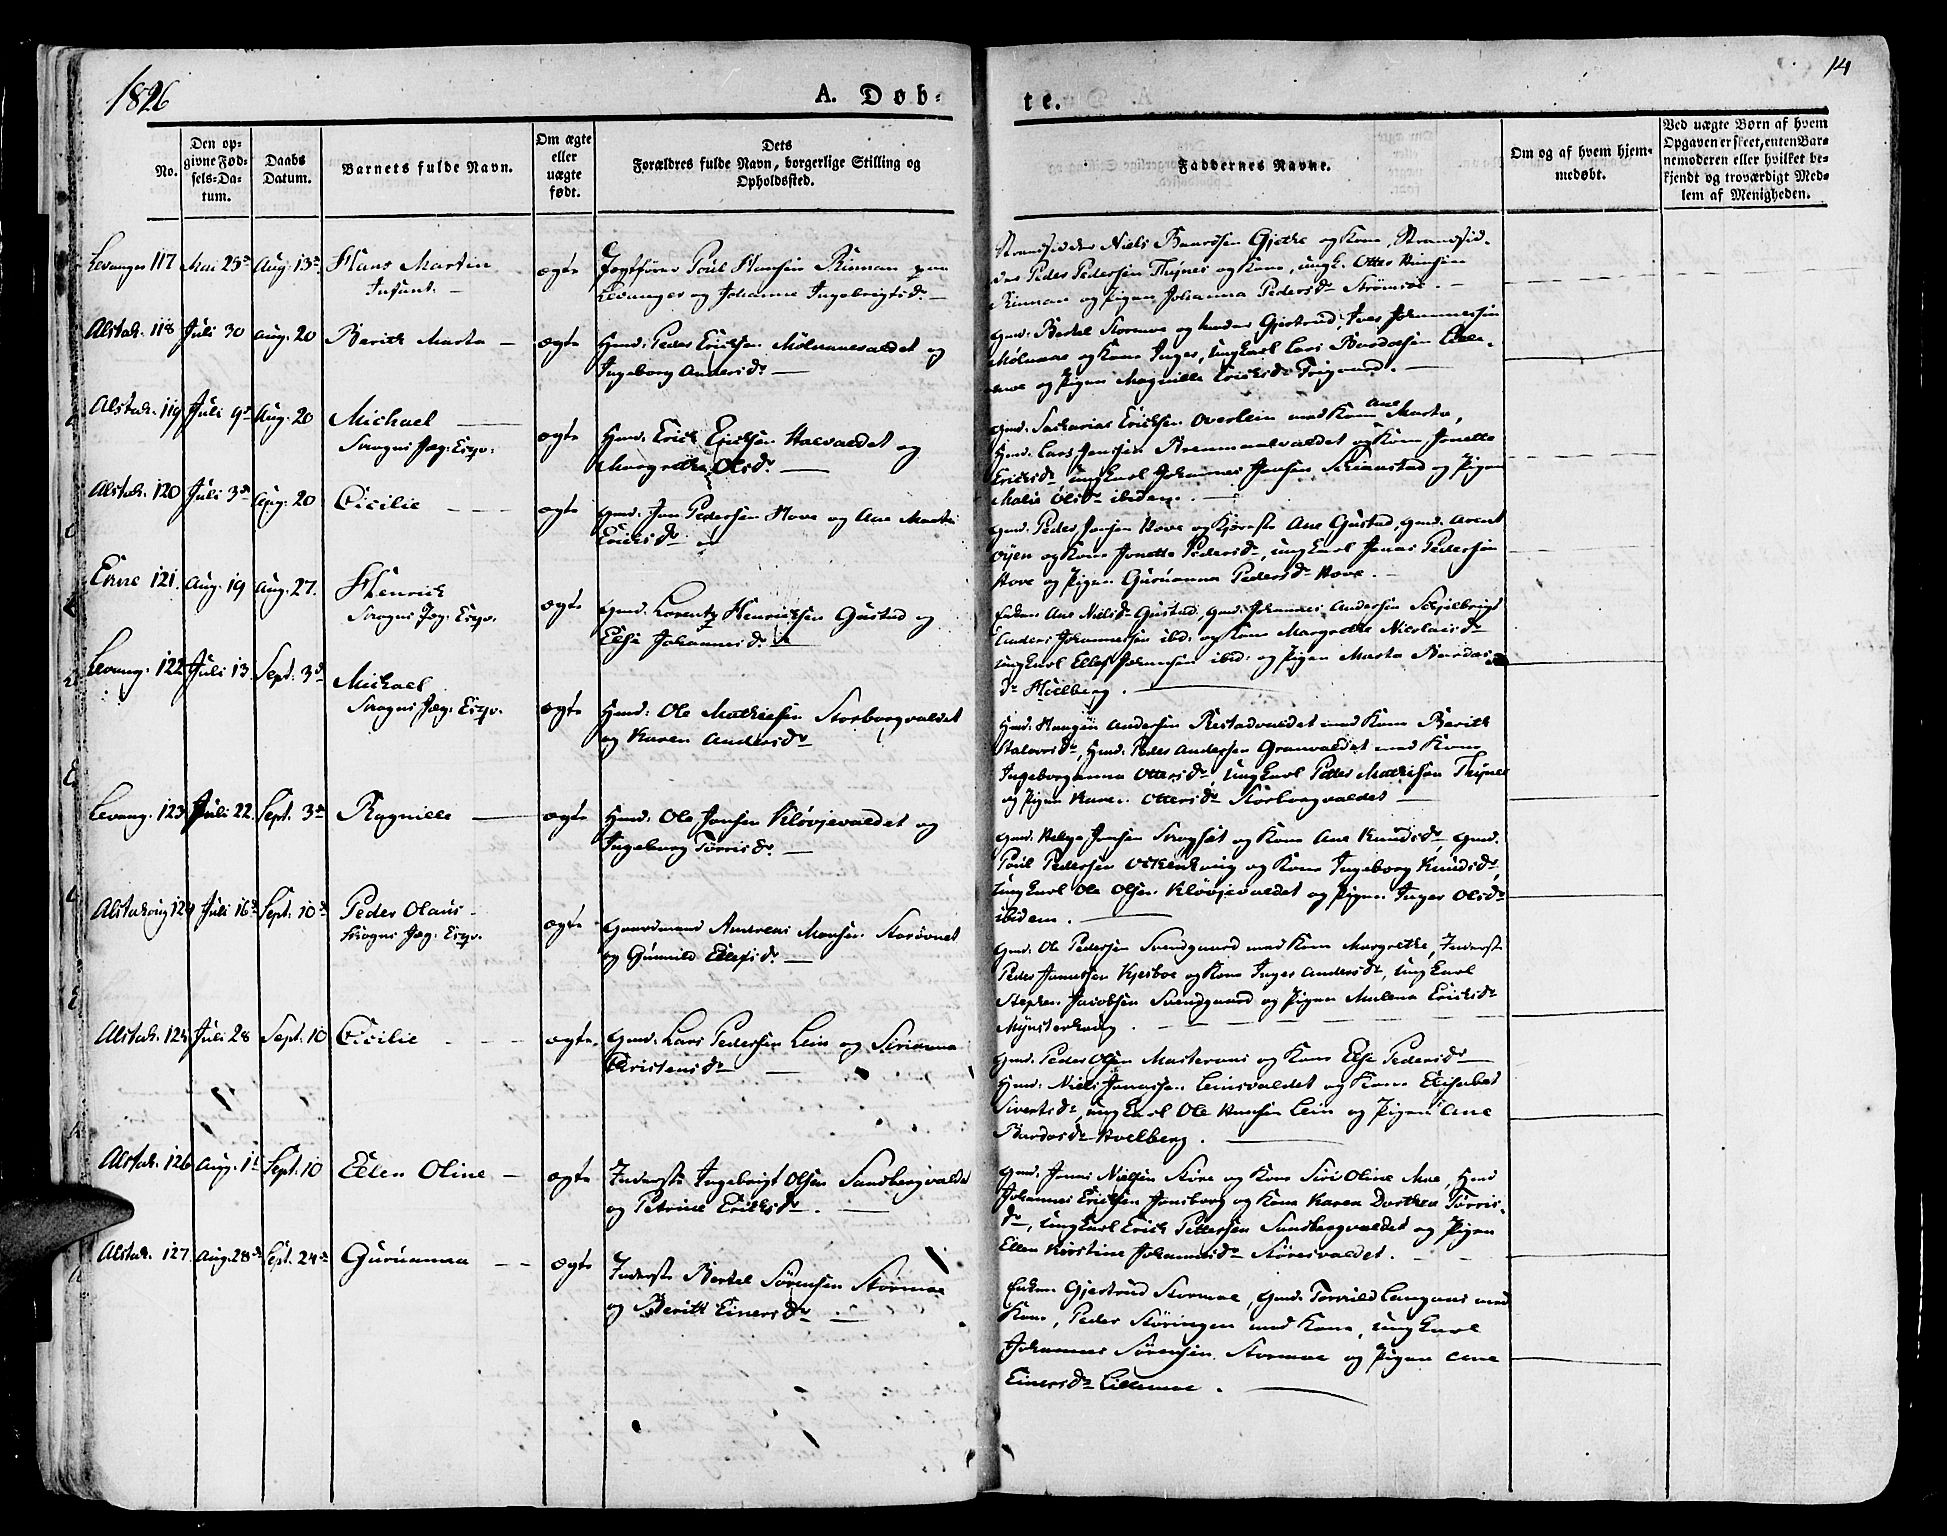 1826
A. Døb-
te.
14
No.
Den op-
givne Fød-
sels-Da-
tum.
Daabs
Datum.
Barnets fulde Navn.
Om ægte
eller
uægte
født.
Dets
Forældres fulde Navn, borgerlige Stilling og
Opholdssted.
Faddernes Navne.
Om og af hvem hjem-
medøbt.
Ved uægte Børn af hvem
Opgaven er skeet, enten Bar-
nemoderen eller hvilket be-
kjendt og troværdigt Med-
lem af Menigheden.
Levanger 117 Mai 25 Aug. 13 Hans Martin
Infant.
ægte
Jagtfører Poul Hansen Rinnan paa
Levanger og Johanna Ingebrigtsdr
Strandsidder Niels Baardsen Gjetke og Kone, Strandsid-
der Peder Pedersen Thynes og Kone, ungk. Otter Hansen
Rinnan og Pigen Johanna Pedersdr Strømsøe.
Alstah. 118 Juli 30 Aug. 20 Berith Marta
ægte
Hmd: Peder Ericksen Mølnaasvaldet og
Ingeborg Andersdr
Gmd: Bertel Stormoe og Gjertrud, Iver Johannesen
Mølnaas og Kone Inger, Ungkarl Lars Bardosen
og Pigen Magnille Ericksdr
Alstah. 119 Juli 9 Aug. 20 Michael
ægte
Hmd: Erick Ericksen Halvaldet og
Margrethe Olsdr
Gmd: Sacharias Ericksen Overlein med Kone Ane Marta,
Hmd: Lars Jonsen og Kone Jonetta
Ericksdr Ungkarl Johannes Jonsen og Pigen
Malie Olsdr ibidem.
Alstah. 120 Juli 3 Aug. 20 Cicilie
ægte
Gmd: Jon Pedersen Hove og Ane Marta
Ericksdr
Gmd: Peder Jonsen Hove og Ane Gustad, Gmd. Arent
Oyen og Kone Jonetta Pedersdr, Ungkarl Jonas Pedersen
Hove og Pigen Guruanna Pedersdr Hove.
Ecne 121. Aug. 19 Aug. 27. Henrick
ægte
Gmd: Lorentz Henricksen Gustad og
Else Johannesdr
Enken Ane Nielsdr Gustad, Gmd. Johannes Andersen
Anders Johannesen ibd: og Kone Margrethe Nicolaisdr
Ungkarl Ellef Johnsen ibid: og Pigen Marta Bardos
dr Heilberg.
Levang. 122 Juli 13 Sept. 3 Michael
ægte
Hmd: Ole Mathisen Storborgvaldet
og Karen Andersdr
Hmd: Haagen Andersen Restadvaldet med Kone Berith
Halvorsdr, Hmd: Peder Andersen Granvaldet med Kone
Ingeborganna Ottersdr Ungkarl Peder Mathisen Thynes
og Pigen Karen Ottersdr Storborgvaldet
Levang. 123 Juli 22. Sept. 3 Ragnille
ægte
Hmd: Ole Jonsen Kløvjevaldet og
Ingeborg Torrisdr.
Gmd: Helge Jonsen og Kone Ane Knudsdr, Gmd.
Poul Pedersen og Kone Ingeborg Knudsdr
Ungkarl Ole Olsen Kløvjevaldet og Pigen Inger Olsdr
ibidem.
Alstahoug 124 Juli 16 Sept. 10 Peder Olaus
ægte
Gaardmand Andreas Monsen
og Gunnild Ellefsdr
Gmd: Ole Pedersen Svendgaard med Kone Margrethe, Inderst
Peder og Kone Inger Andersdr, Ungkarl
Stephen Jacobsen Svendgaard og Pigen Malena Ericksdr
Mynsterhoug.
Alstah. 125 Juli 28 Sept. 10 Cicilie
ægte
Gmd: Lars Pedersen Lein og Sirianna
Christensdr
Gmd: Peder Olsen og Kone Else Pedersdr
Hmd: Niels Jonassen Leinsvaldet og Kone Elisabet
Sivertsdr, Ungkarl Ole Hansen Lein og Pigen Ane
Bardosdr Hoelberg.
Alstah. 126 Aug. 1 Sept. 10 Ellen Oline
ægte
Inderste Ingebrigt Olsen Sandbergvaldet
og Petrine Ericksdr.
Gmd. Jonas Nielsen og Kone Siri Oline Moe, Hmd
Johannes Ericksen Jonsborg og Kone Karen Dorthea Torris-
dr, Ungkarl Erick Pedersen Sandbergvaldet og Pigen
Ellen Kirstine Johannesdr
Alstah. 127 Aug. 28 Sept. 24 Guruanna
ægte
Inderste Bertel Sørensen Stormoe
og Beritt Einersdr
Enken Gjertrud Stormoe, Gmd. Torrild med
Kone, Peder Støringen med Kone, Ungkarl
Johannes Sørensen Stormoe og Pigen Ane
Einersdr Lillemoe.